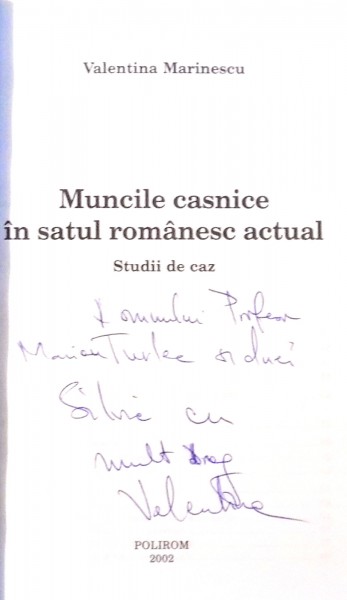 Valentina Marinescu
Muncile casnice
în satul românesc actual
Studii de caz
Domnului Profesor
Marian și dnei
Silvia cu
mult drag
Valentina
POLIROM
2002